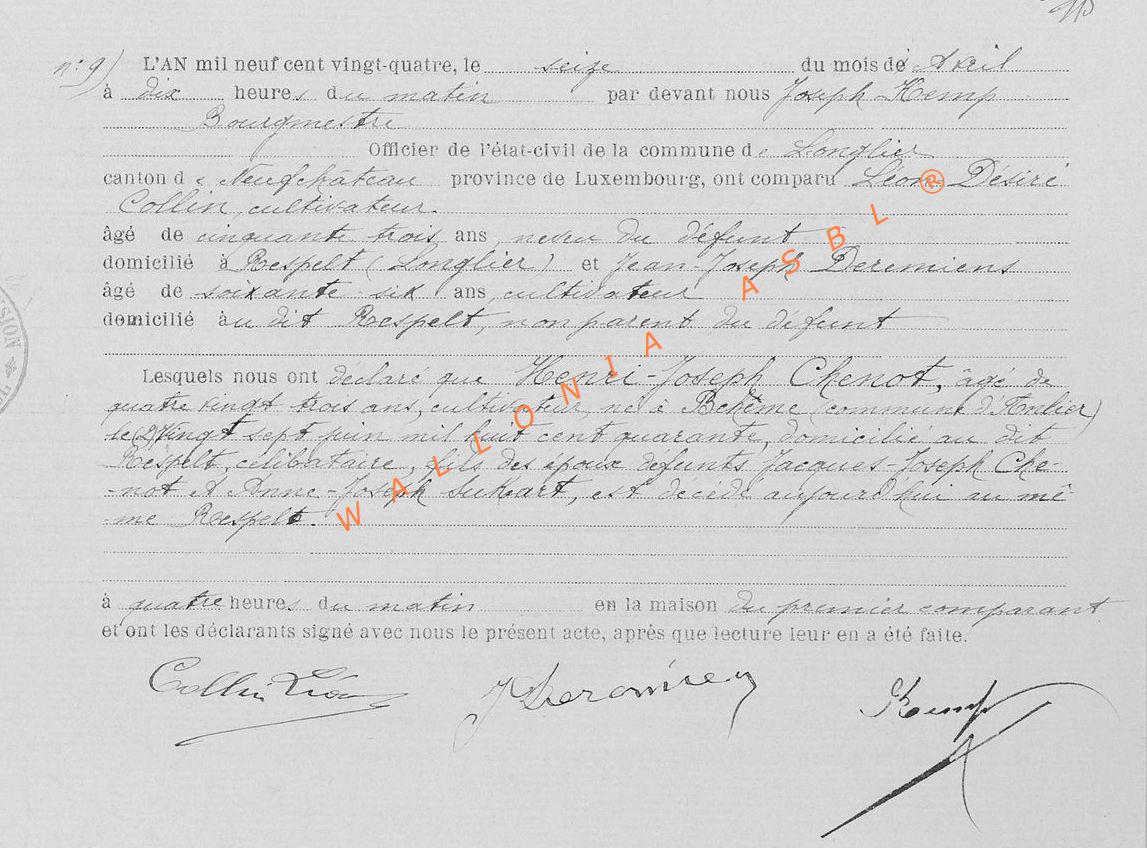 n° 9) L'AN mil neuf cent vingt-quatre, le seize du mois de Avril
à dix heures du matin par devant nous Joseph Kemp
Bourgmestre
Officier de l'état-civil de la commune de Longlier
canton de Neufchâteau province de Luxembourg, ont comparu Léon Désiré
Collin, cultivateur.
âgé de cinquante trois ans, neveu du défunt
domicilié à Respelt (Longlier) et Jean-Joseph Deremiens
âgé de soixante six ans, cultivateur
domicilié au dit Respelt, non parent du défunt
Lesquels nous ont déclaré que Henri-Joseph Chenot, âgé de
quatre vingt trois ans, cultivateur, né à Behême (commune d'Anlier)
le vingt sept juin mil huit cent quarante, domicilié au dit
Respelt, célibataire, fils des époux défunts Jacques-Joseph Che-
-not et Anne-Joseph est décédé aujourd'hui au mê-
-me Respelt.
à quatre heures du matin en la maison du premier comparant
et ont les déclarants signé avec nous le présent acte, après que lecture leur en a été faite.
Collin Léon
Kemp
WALLONIA ASBL ®